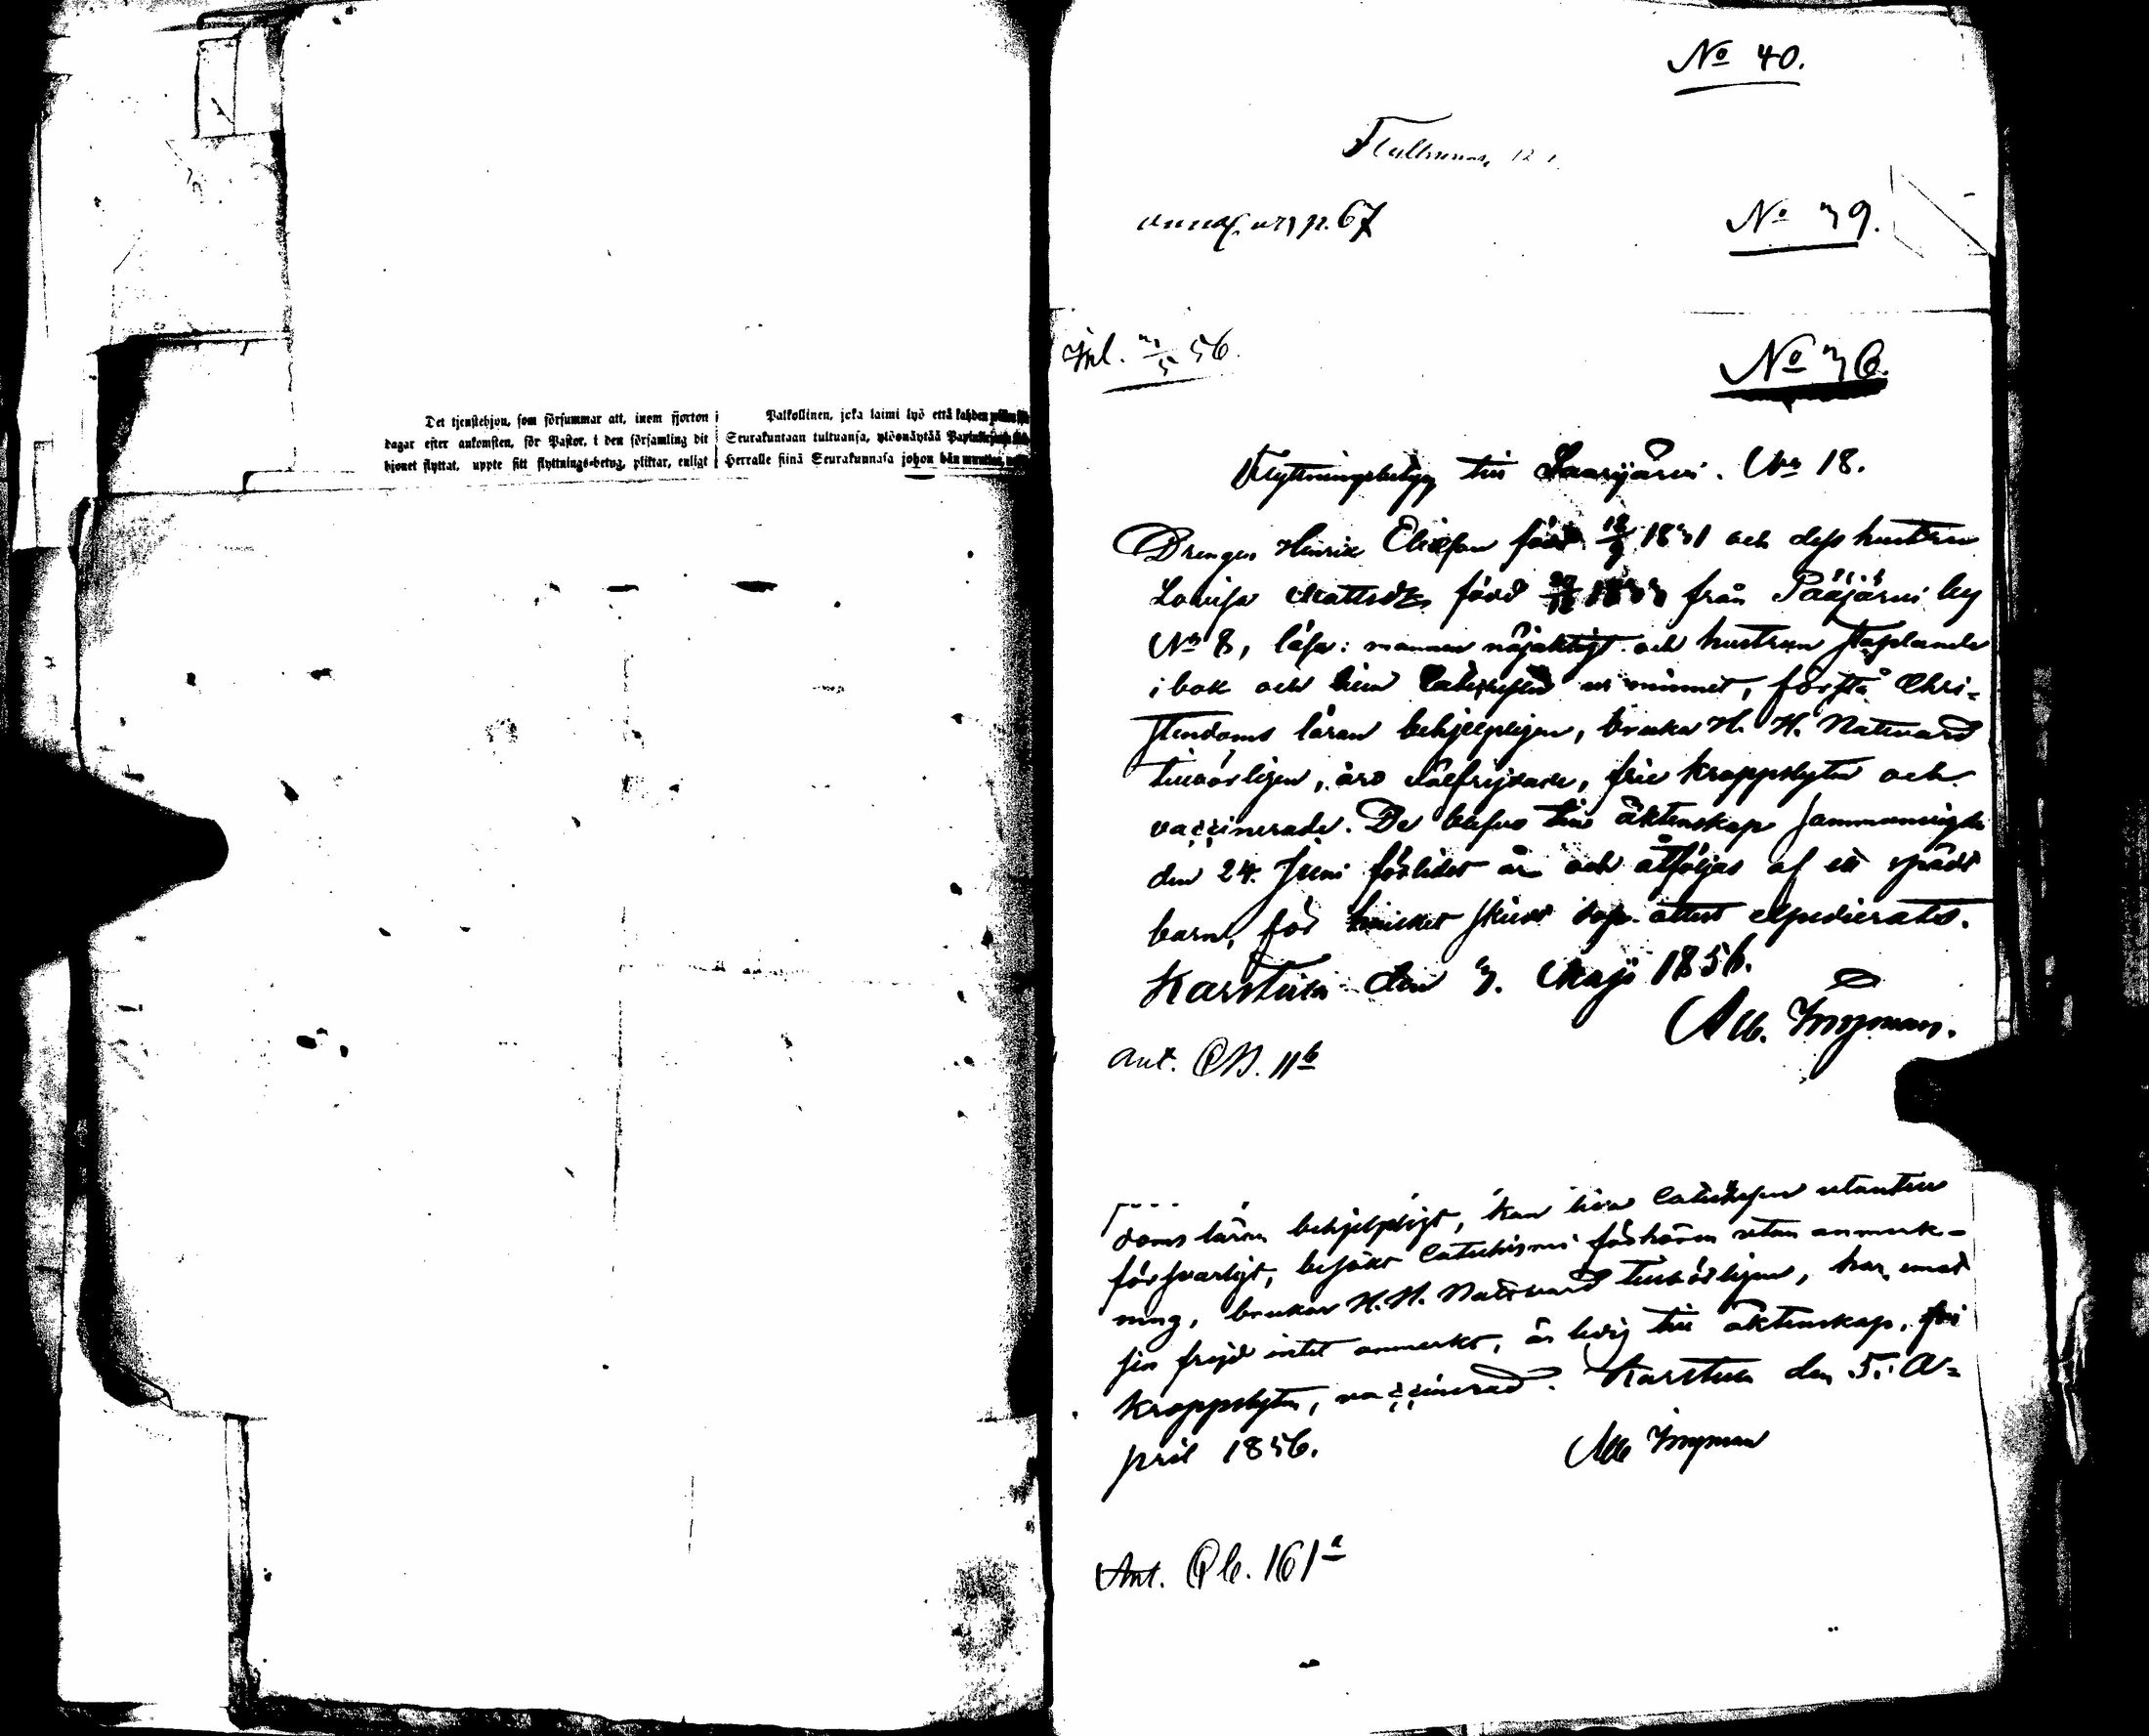 Det tjenstehjon, som försummar att, inom fjorton
dagar efter ankomsten, för Pastor, i den församling dit
hjonet flyttat, uppte sitt flyttnings-betyg, pliktar, enligt
Palkollinen, joka laimi lyö että kahden
Seurakuntaan tultuansa, ylösnäytää
Herralle siinä Seurakunnasa johon hän muuttaa,
No 40.
p. 67
No 39.
Inl. 3/5 56.
No 36.
Flyttningsbetyg till Saarijärvi. No 18.
Drengen Henrik Eliasson född 18/9 1831 och dess hustru
Lovisa Mattsdr född från Pääjärvi by
No 8, läsa: mannen nöjaktigt och hustrun staplande
i bok och lilla Catechesen ur minnet, förstå Chri-
stendoms läran behjelpligen, bruka H. H. Nattvard
tillbörligen, äro välfrejdade, frie kroppslyten och
vaccinerade. De blefvo till äktenskap sammanvigde
den 24. Juni förlidet år och åtföljas af ett spädt
barn, för hvilket skild dop-attest expedierats.
Karstula den 3. Maji 1856.
Alb. Ingman.
Ant. CB. 11b
doms läran behjelpligt, kan lilla Catechesen utantill
försvarligt, besökt Catechismi förhören utan anmärk-
ning, brukar H. H. Nattvard tillbörligen, har emot
sin frejd intet anmärkt, är ledig till äktenskap, fri
kroppslyten, vaccinerad. Karstula den 5. A-
pril 1856.
Alb Ingman
Ant. Cb. 161a